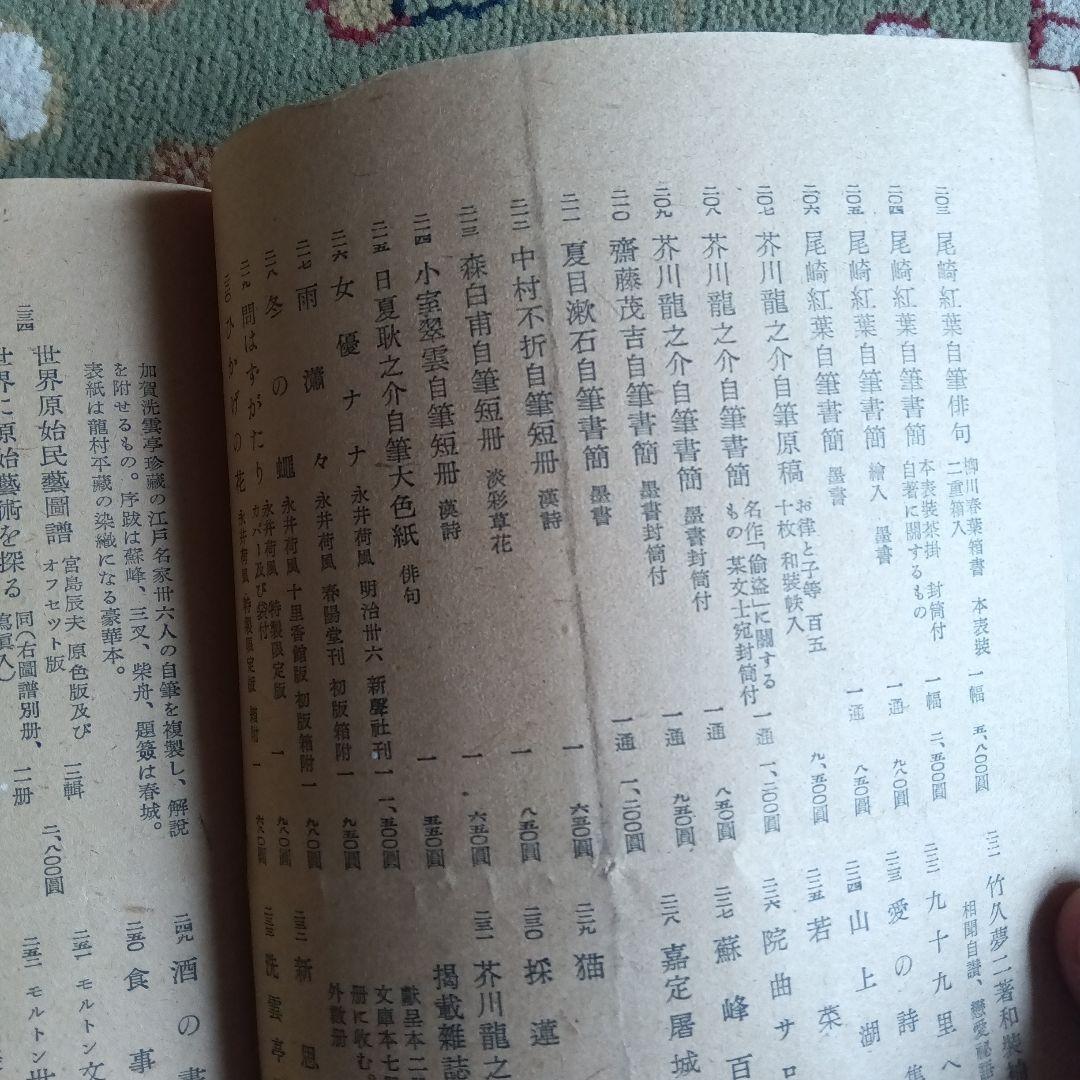 二〇三 尾崎紅葉自筆俳句 柳川春葉箱書 本表裝 二重箱入 一幅 五、八〇〇圓
二〇四 尾崎紅葉自筆書簡 本表裝茶掛 封筒付 自著に關するもの 一幅 二、五〇〇圓
二〇五 尾崎紅葉自筆書簡 繪入 墨書 一通 九八〇圓
二〇六 尾崎紅葉自筆書簡 墨書 一通 八五〇圓
二〇七 芥川龍之介自筆原稿 お律と子等 百五十枚 和裝帙入 九、五〇〇圓
二〇八 芥川龍之介自筆書簡 名作「偷盗」に關するもの 某文士宛封筒付 一通 一、二〇〇圓
二〇九 芥川龍之介自筆書簡 墨書封筒付 一通 八五〇圓
二一〇 齋藤茂吉自筆書簡 墨書封筒付 一通 九五〇圓
二一一 夏目漱石自筆書簡 墨書 一通 一、二〇〇圓
二一二 中村不折自筆短册 漢詩 一 六五〇圓
二一三 森白甫自筆短册 淡彩草花 一 八五〇圓
二一四 小室翠雲自筆短册 漢詩 一 六五〇圓
二一五 日夏耿之介自筆大色紙 俳句 一 五五〇圓
二一六 女優ナナ 永井荷風 明治卅六 新聲社刊 一 一、五〇圓
二一七 雨瀟々 永井荷風 春陽堂刊 初版箱附 一 九五〇圓
二一八 冬の蠅 永井荷風 十里香館版 初版箱附 一 九八〇圓
二一九 問はずがたり 永井荷風 特製限定版 カバー及び袋付 一 九八〇圓
二二〇 ひかげの花 永井荷風 特製限定版 一 六八〇圓
二二一 竹久夢二著和裝
相聞自讃、戀愛祕語
二二二 九十九里へ
二二三 愛の詩集
二二四 山上湖
二二五 若菜
二二六 院曲サロ
二二七 蘇峰百
二二八 嘉定屠城
二二九 猫
二三〇 採蓮
二三一 芥川龍之
揭載雜誌
獻呈本二
文庫本七
册に收む。
外數册
二三二 新思
二三三 洗雲亭
加賀洗雲亭珍藏の江戸名家卅六人の自筆を複製し、解説
を附せるもの。序跋は蘇峰、三叉、柴舟、題簽は春城。
表紙は龍村平藏の染織になる豪華本。
二三四 世界原始民藝圖譜 宮島辰夫 原色版及びオフセット版 三輯 二、八〇〇圓
世界に原始藝術を探る 同(右圖譜別册、寫眞入) 二册
二四九 酒の書
二五〇 食事
二五一 モルトン文
二五二 モルトン世